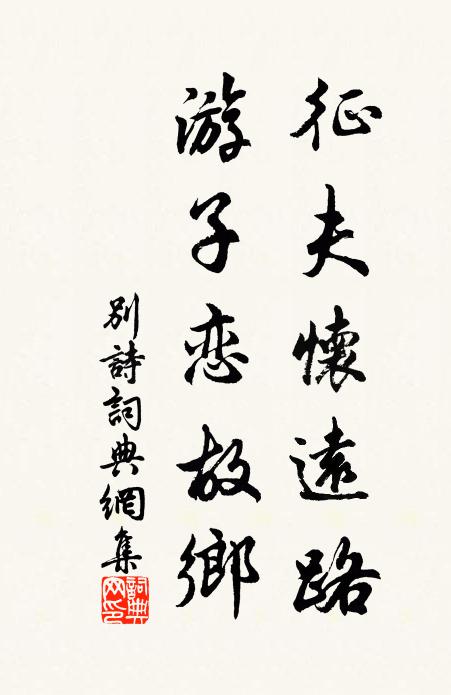 征夫懷遠路
游子恋故鄉
別詩詞典網集
詞典网印